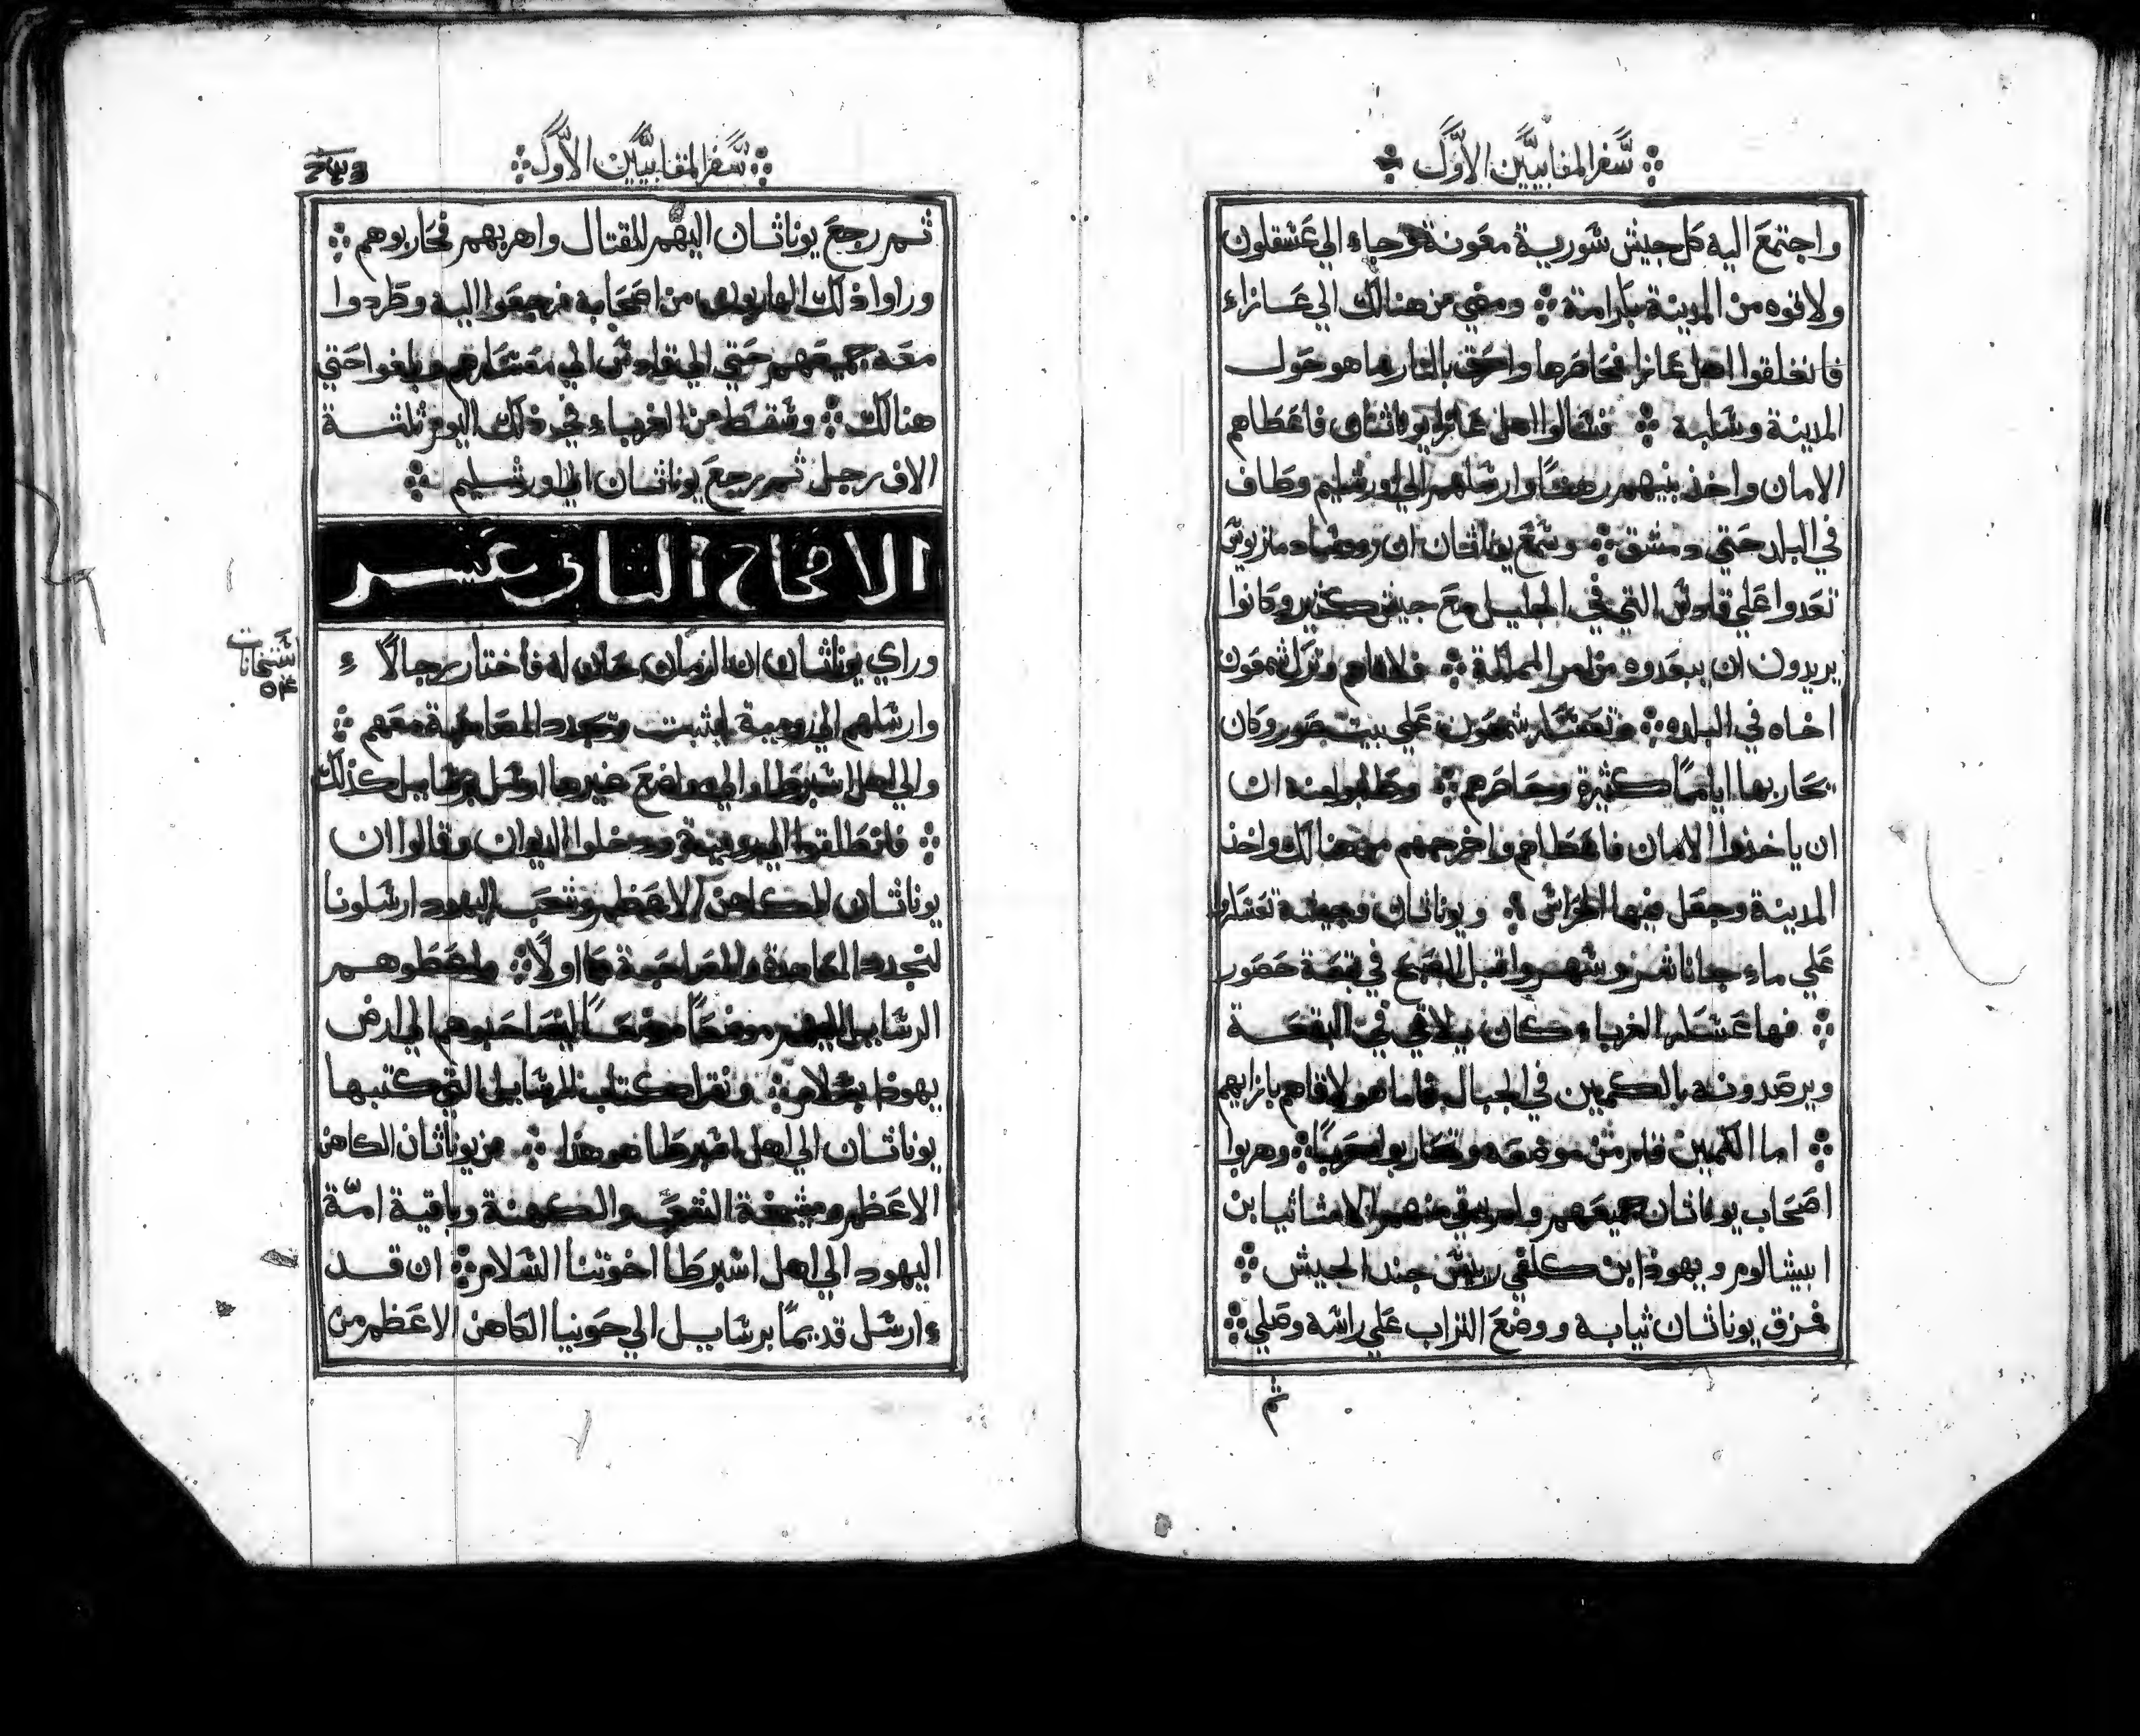 سَفر المقابيَّين الاَوَّل
واجتمَعَ اليه كل جيش سَورية معَونة وجاء الي عَسَقلون
ولاقوه من المدينة بكرامة ومضي من هنالك الي عَازاء
فانغلقوا اهل عَازا فحَاصَرها واحَرق بالنار ما هو حَول
المدينة وسَلبه فسَالوا اهل عَازا يوناثان فاعَطاهم
الامان واخذ بنيهم رهنًا وارسَلهم الي اورشليم وطاف
في البلد حَتي دمشق وسَمَعَ يوناثان ان روسَاء ديمتريوسَ
تعَدوا عَلي قادسَ التي في الجليل معَ جيش كثير وكانوا
يريدون ان يبعَدوه من امر المملكة فلاقاهم وترك شمعَون
اخاه في البلد وتعَسَكر شمعَون عَلي بيت صَور وكان
يحَاربها ايامًا كثيرة وحَاصَرهم وطلبوا منه ان
ان ياخذوا الامان فاعَطاهم واخرجهم من هنالك واخذ
المدينة وجعَل فيها الحَراسَ ويوناثان وجيشه تعَسَكروا
عَلي ماء جاناشر وسَهروا قبل الصَبحَ في بقعَة حَصَور
فها عَسَكر الغرباء كان يلاقي في البقعَة
ويرصَدونه بالكمين في الجبال فاما هو لاقاهم بازايهم
اما الكمين قام من موضعَه وتحَاربوا حَربًا وهربوا
اصَحَاب يوناثان جميعَهم ولم يبقي منهم الا متاثيا بن
ابيشالوم ويهوذا بن كلفي رييسَ جند الجيش
فمزق يوناثان ثيابه ووضعَ التراب عَلي راسَه وصَلي
ثم
سَفر المقابيَّين الاَوَّل
ثم رجعَ يوناثان اليهم للقتال واهربهم فحَاربوهم
وراوا ذلك الهاربون من اصَحَابه فرجعَوا اليه وطردوا
معَه جميعَهم حَتي الي قادسَ الي معَسَكرهم وبلغوا حَتي
هنالك وسَقط من الغرباء في ذلك اليوم ثلثة
الاف رجل ثم رجعَ يوناثان الي اورشليم
الاصحاح الثاني عَشر
وراي يوناثان ان الزمان حَان له فاختار رجالاً
وارسَلهم الي رومية ليثبت وتجدد المصَاحَبة معَهم
والي اهل اسَبرطا والي مواضعَ غيرها ارسَل برسَايل كذلك
فانطلقوا الي رومية ودخلوا الديوان وقالوا ان
يوناثان الكاهن الاعَظم وشعَب اليهود ارسَلونا
لنجدد المعَاهدة والمصَاحَبة كما اولاً واعَطوهم
الرسَايل اليهم موضعًا موضعًا ليصَاحَبوهم الي ارض
يهوذا بسَلام ونقرا كتاب الرسَايل التي كتبها
يوناثان الي اهل اسَبرطا هو هذا من يوناثان الكاهن
الاعَظم ومشيخة الشعَب والكهنة وباقية امّة
اليهود الي اهل اسَبرطا اخوتنا السَلام ان قد
ارسَل قديمًا برسَايل الي حَونيا الكاهن الاعَظم من